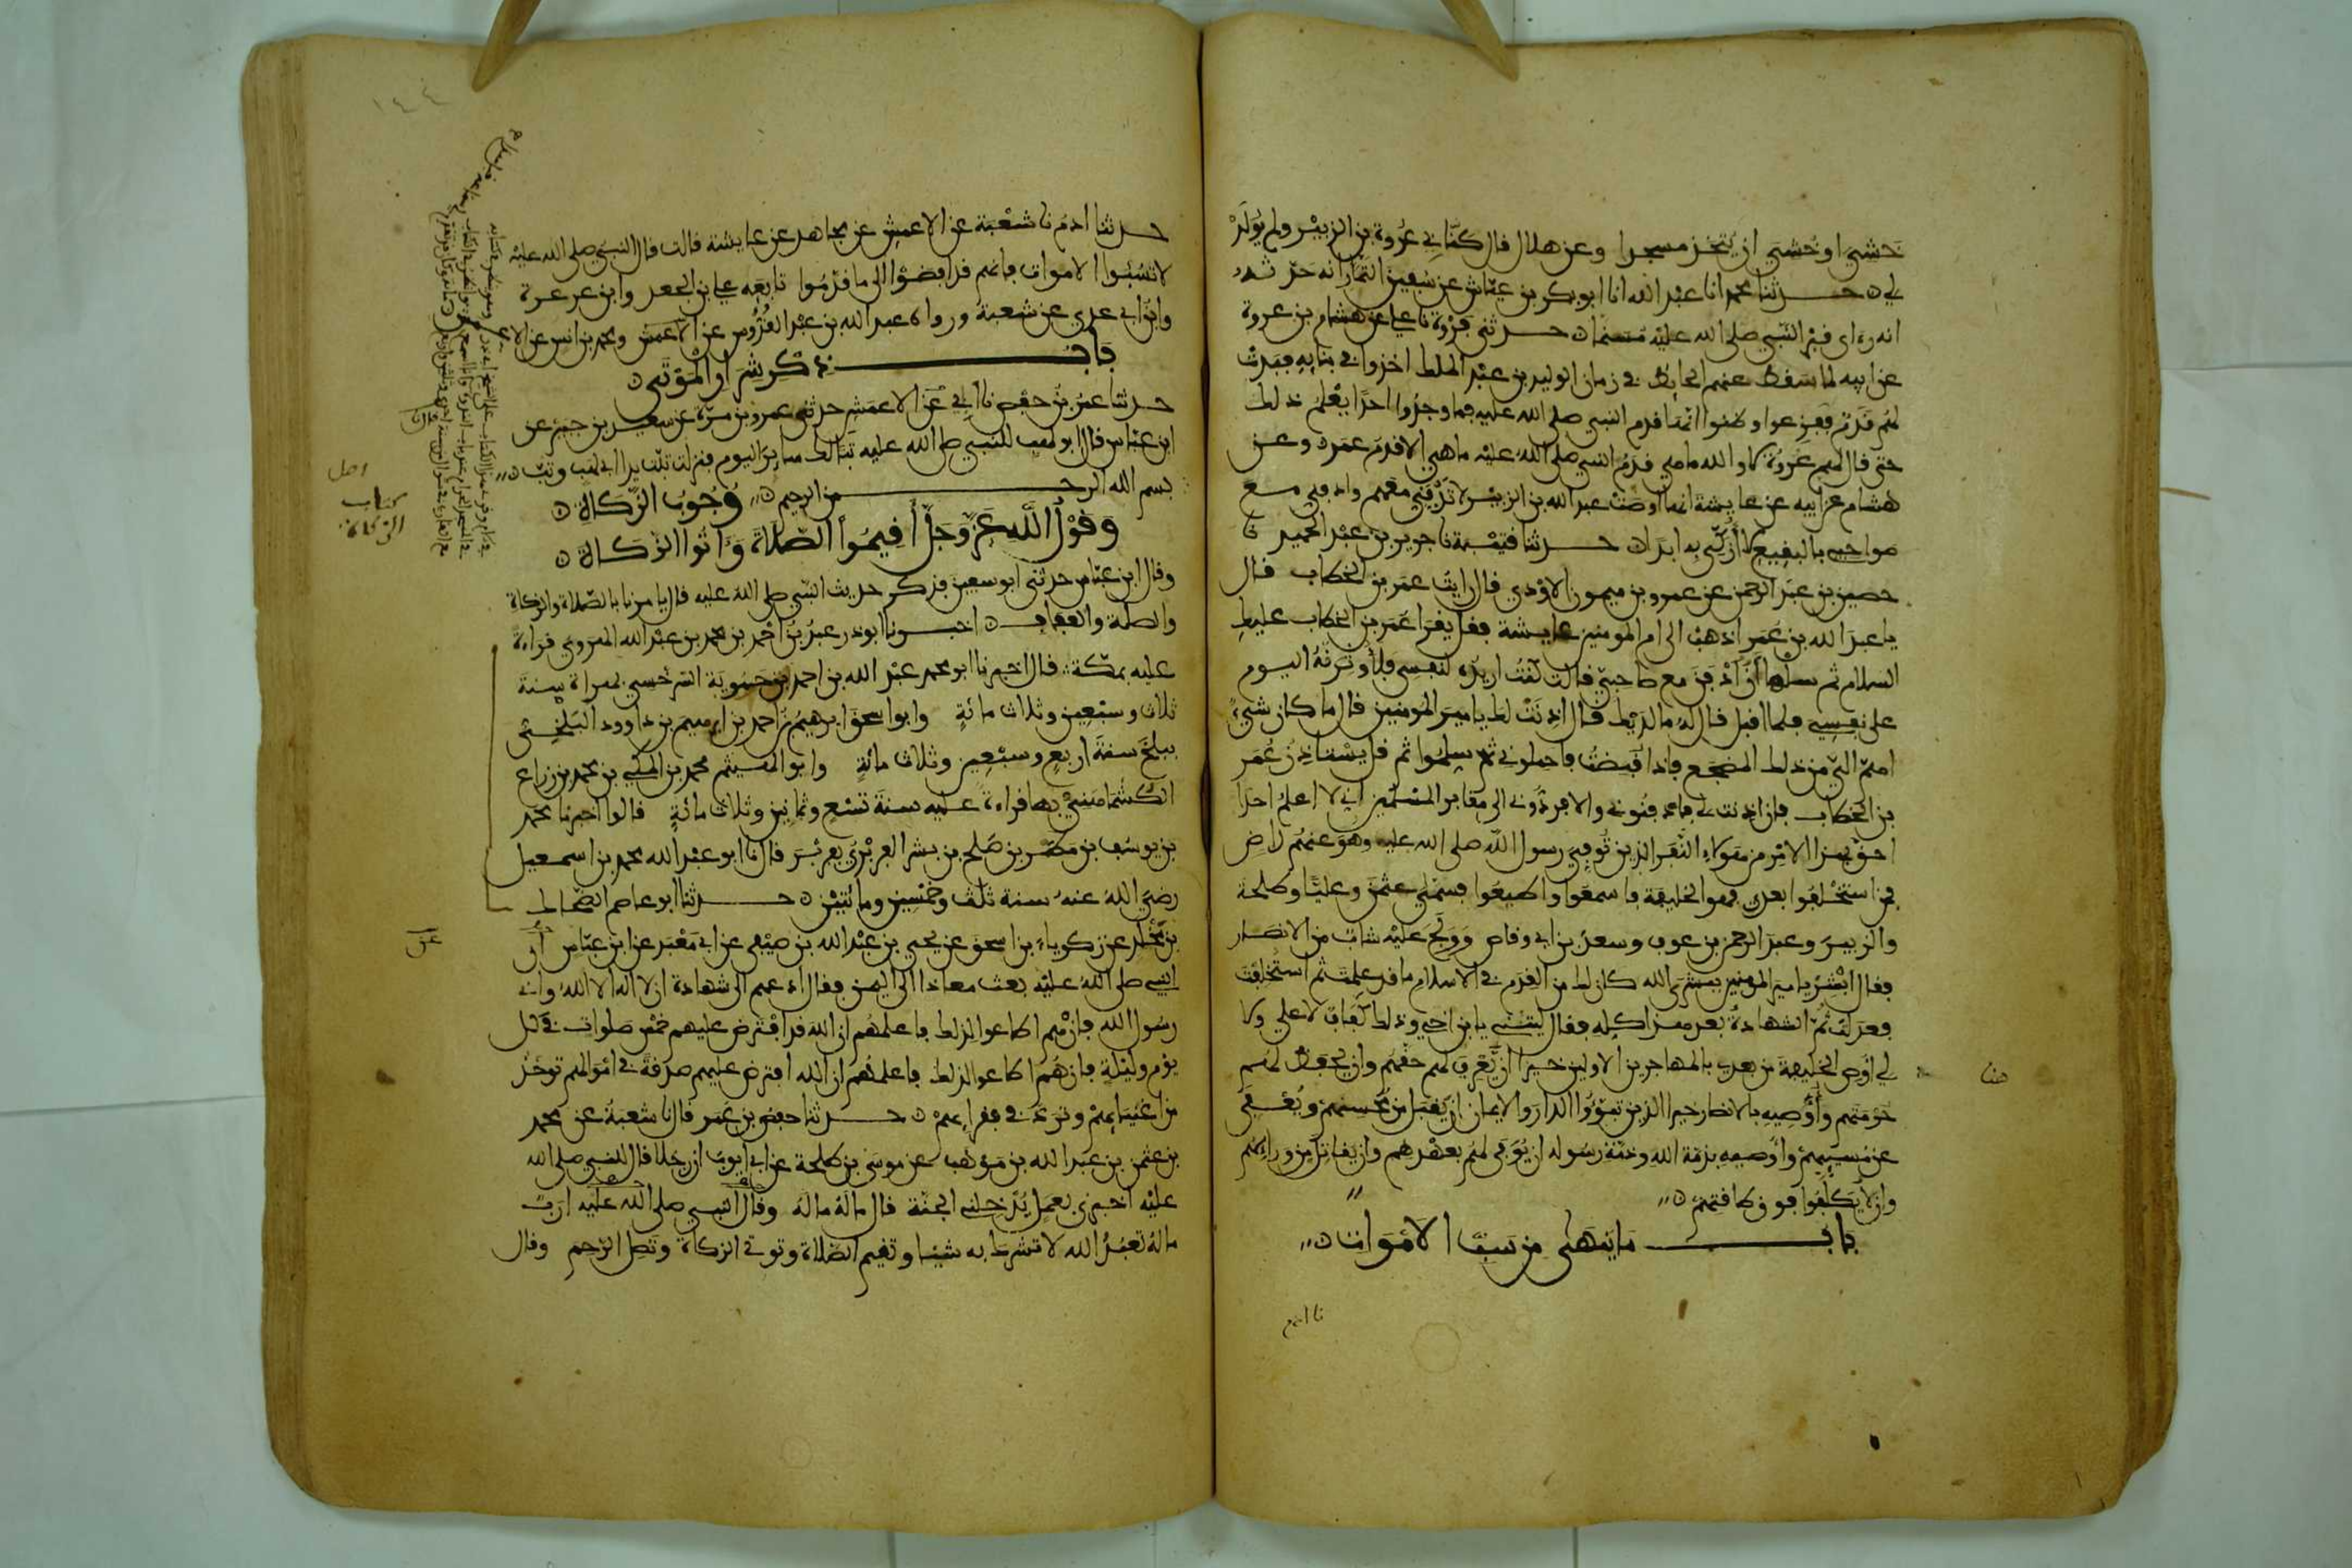 خشي او خُشي ان يُتّخذ مسجدا وعن هلال قال كنّاني عُروة بن الزبير ولم يُولَدْ
لي حدثنا محمد انا عبد الله انا ابو بكر بن عيّاش عن سُفين التمّار انه حدّثه
انه رءاى قبر النبي صلى الله عليه مسنما حدثني فروة نا علي عن هشام بن عروة
عن ابيه لما سقط عنهم الحائط في زمان الوليد بن عبد الملك اخذوا في بنايه فبدت
لهم قدم ففزعوا وظنوا انّها قدم النبي صلى الله عليه فما وجدُوا احدًا يعْلمُ ذلك
حتى قال لهم عروة لا والله ما هي قدمُ النبي صلى الله عليه ما هي الا قدم عمر وعن
هشام عن ابيه عن عايشة انها اوصت عبد الله بن الزبير لا تدْفِنّي معهم وادفني مع
صواحبي بالبقيع لا أُزكّى به ابدا حدثنا قتيبة نا جرير بن عبد الحميد نا
حصين بن عبد الرحمن عن عمرو بن ميمون الاوْدي قال رايت عمر بن الخطاب قال
يا عبد الله بن عُمر اذهبْ الى ام المومنين عايشة فقل يقرا عمر بن الخطاب عليك
السلام ثم سلها أنْ أُدْفَن مع صاحبيّ قالت كنتُ اريدُه لنفسي فلأُوثرنّهُ اليوم
على نفسي فلما اقبل قال لهُ ما لديك قال اذِنَتْ لك يا امير المومنين قال ما كان شيءٌ
اهمّ اليّ من ذلك المضجع فاذا قُبضتُ فاحملوني ثم سلِّموا ثم قل يسْتاذنُ عُمر
بن الخطاب فان اذنت لي فادفنوني والا فردُّوني الى مقابر المسلمين اني لا اعلمُ احدًا
احقّ بهذا الامْر من هؤلاءِ النَّفَر الذين تُوفّي رسول الله صلى الله عليه وهو عنهُم راضٍ
فمن استخْلفوا بعدي فهو الخليفة فاسمعوا واطيعُوا فسمّى عثمن وعليًّا وطلحة
والزبير وعبد الرحمن بن عوف وسعد بن ابي وقاص وَوَلَج عليْه شابّ من الانصار
فقال ابْشِرْ يا امير المومنين ببشرى الله كان لك من القِدم في الاسلام ما قد علمت ثم استُخلفت
فعدلت ثمّ الشهادةُ بعد هذا كلِّه فقال ليتني يا ابن اخي وذلك كفافٌ لا علي ولا
لي اوُصي الخليفة من بعدي بالمهاجرين الاولين خيرًا أنْ يَّعرِفَ لهم حقهم وان يحفظ لهم
حُرمتهم وأُوصيه بالانصار خيرا الذين تبوّءُوا الدار والايمان ان يُقبل من مُحْسنهم ويُعفى
عن مُسيئهم وأُوصيه بذمّة الله وذمّة رسُوله ان يُوفى لهُم بعهْدهم وان يقاتَل من ورائهم
وان لا يُكلَّفوا فوق طاقتهم
باب ما ينهى من سَبّ الامْوات
نا ادم
هنا
١٤٤
حدثنا ادم نا شعْبة عن الاعمش عن مجاهد عن عايشة قالت قال النبي صلى الله عليْه
لا تسُبّوا الاموات فانهم قد افضوْا الى ما قدّمُوا تابَعه علي بن الجعد وابن عرعرة
وابْنُ ابي عدي عن شعبة ورواه عبد الله بن عبْد القُدُّوس عن الاعمش ومحمد بن انس عن الاعمش
بَابُ ذكر شِرَارِ الْمَوْتى
حدثنا عمرُ بنُ حفص نا ابي نا الاعمش حدثني عمرو بن مرّة عن سعيد بن جبير عن
ابن عبّاس قال قال ابو لهب للنبي صلى الله عليه تبّا لك سايرَ اليوم فنزلت تبّت يدا ابي لهب وتبّ
بسم الله الرحمن الرحيم وُجُوبُ الزّكاة
وَقَوْلُ اللَّه عَزّ وَجَلّ أَقِيمُواْ الصّلاةَ وَءَاتُوا الزّكَاةَ
وقال ابن عبّاس حدثني ابو سفين فذكر حديث النّبي صلى الله عليه قال يامرنا بالصّلاة والزكاة
والصلة والعفاف اخبرنا ابو ذر عبدُ بنُ احْمد بن محمد بن عبْد الله الهروي قراءةً
عليه بمكّة قال اخبرنا ابو محمد عبْد الله بن احمد بن حمُّوية السّرخسي بهراة سنة
ثلاث وسبْعين وثلاث مائةٍ وابو اسحق ابرهيمُ بن احمد بن ابرهيم بن داوود البلْخيُّ
ببلخ سنة اربع وسبْعين وثلاث مائةٍ وابو الهيثم محمد بن المكي بن محمد بن زراع
الكُشْماهَنيّ بها قراءة عليه سنة تسْع وثمانين وثلاث مائةٍ قالوا اخبرنا محمد
بن يوسُف بن مَطر بن صَلح بن بشر الفربْري بفربْر قال نا ابو عبْد الله محمد بن اسمعيل
رضيَ اللهُ عنهُ سنة ثلث وخمْسين ومائتيْن حدثنا ابو عاصم الضّحاك
بن مخْلد عن زكرياء بن اسحق عن يحيى بن عبْد الله بن صيْفي عن ابي مَعْبد عن ابن عبّاس أنّ
النبي صلى اللهُ عليْه بعث معاذا الى اليمن فقال ادعهم الى شهادة ان لا اله الا اللهُ واني
رسُول الله فان هُم اطاعوا لذلك فاعلمهُم ان الله قد افْترض عليهم خمْس صَلوات في كل
يوْم وليْلةٍ فان هُم اطاعوا لذلك فاعلمهُم ان الله افترض عليهم صدقةً في امْوالهم توخذُ
من اغنيائهمْ وتردّ في فقرائهمْ حدثنا حفص بن عُمر قال نا شعبةُ عن محمد
بن عثمن بن عبْد الله بن موهب عن موسى بن طلحة عن ابي ايوبَ ان رجُلا قال للنبي صلى الله
عليْه اخبرني بعمل يُدْخلني الجنّة قال مالَهُ مالَهُ وقال النّبي صلى الله عليْه اربٌ
مالهُ تعْبُدُ الله لا تشرك به شيْئا وتقيم الصّلاة وتوتي الزكاة وتصل الرّحم وقال
اصل
كتاب
الزكاة
عن